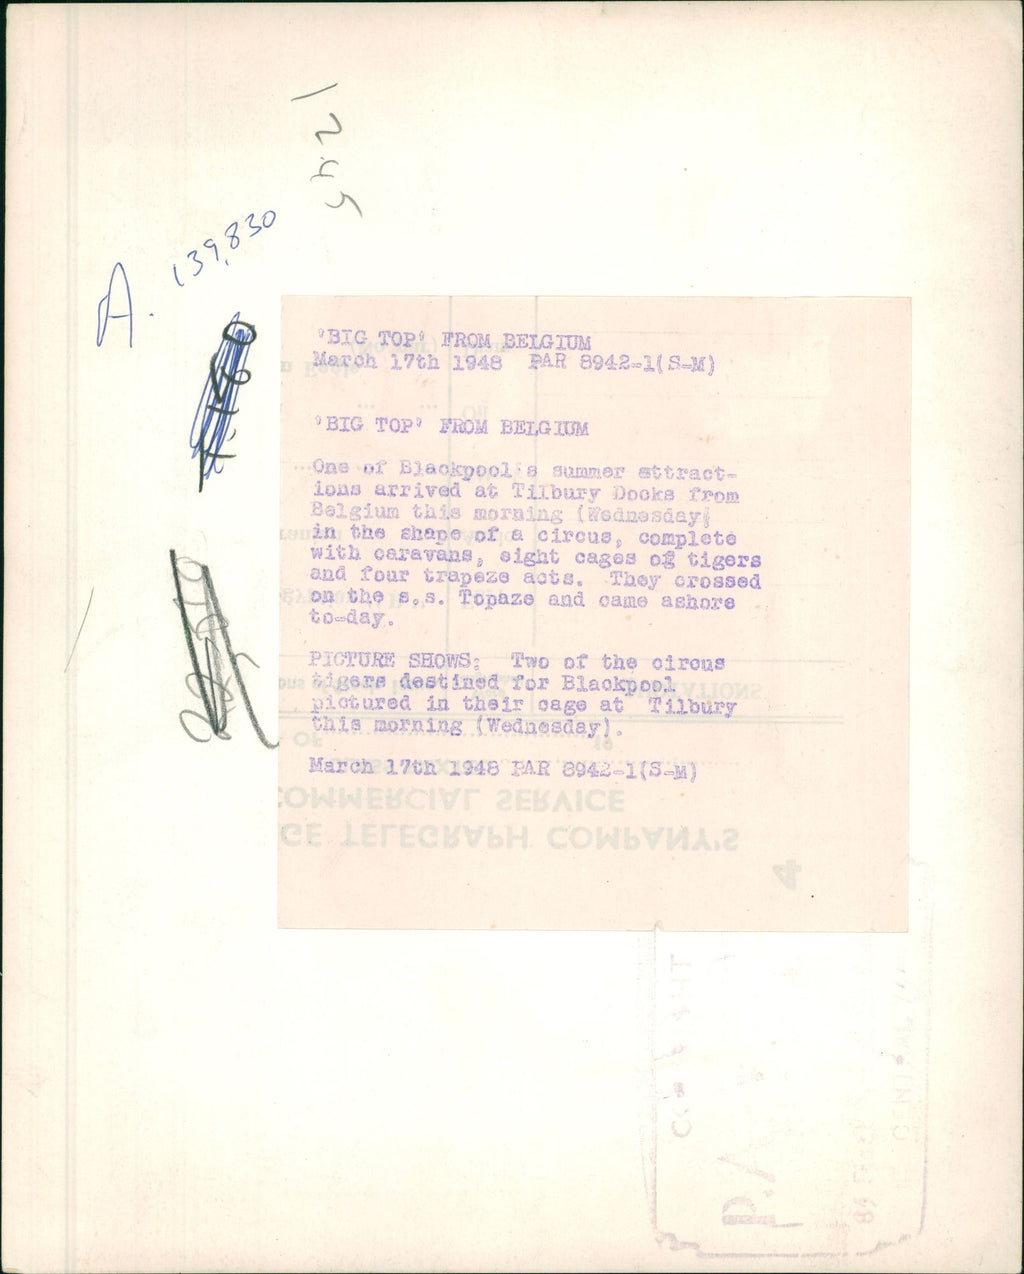 1245
A. 139,830
'BIG TOP' FROM BELGIUM
March 17th 1948 PAR 8942-1(S-M)
'BIG TOP' FROM BELGIUM
One of Blackpool's summer attract-
ions arrived at Tilbury Docks from
Belgium this morning (Wednesday)
in the shape of a circus, complete
with caravans, eight cages of tigers
and four trapeze acts. They crossed
on the s.s. Topaze and came ashore
to-day.
PICTURE SHOWS: Two of the circus
tigers destined for Blackpool
pictured in their cage at Tilbury
this morning (Wednesday).
March 17th 1948 PAR 8942-1(S-M)
COMMERCIAL SERVICE
GE TELEGRAPH COMPANY'S
4